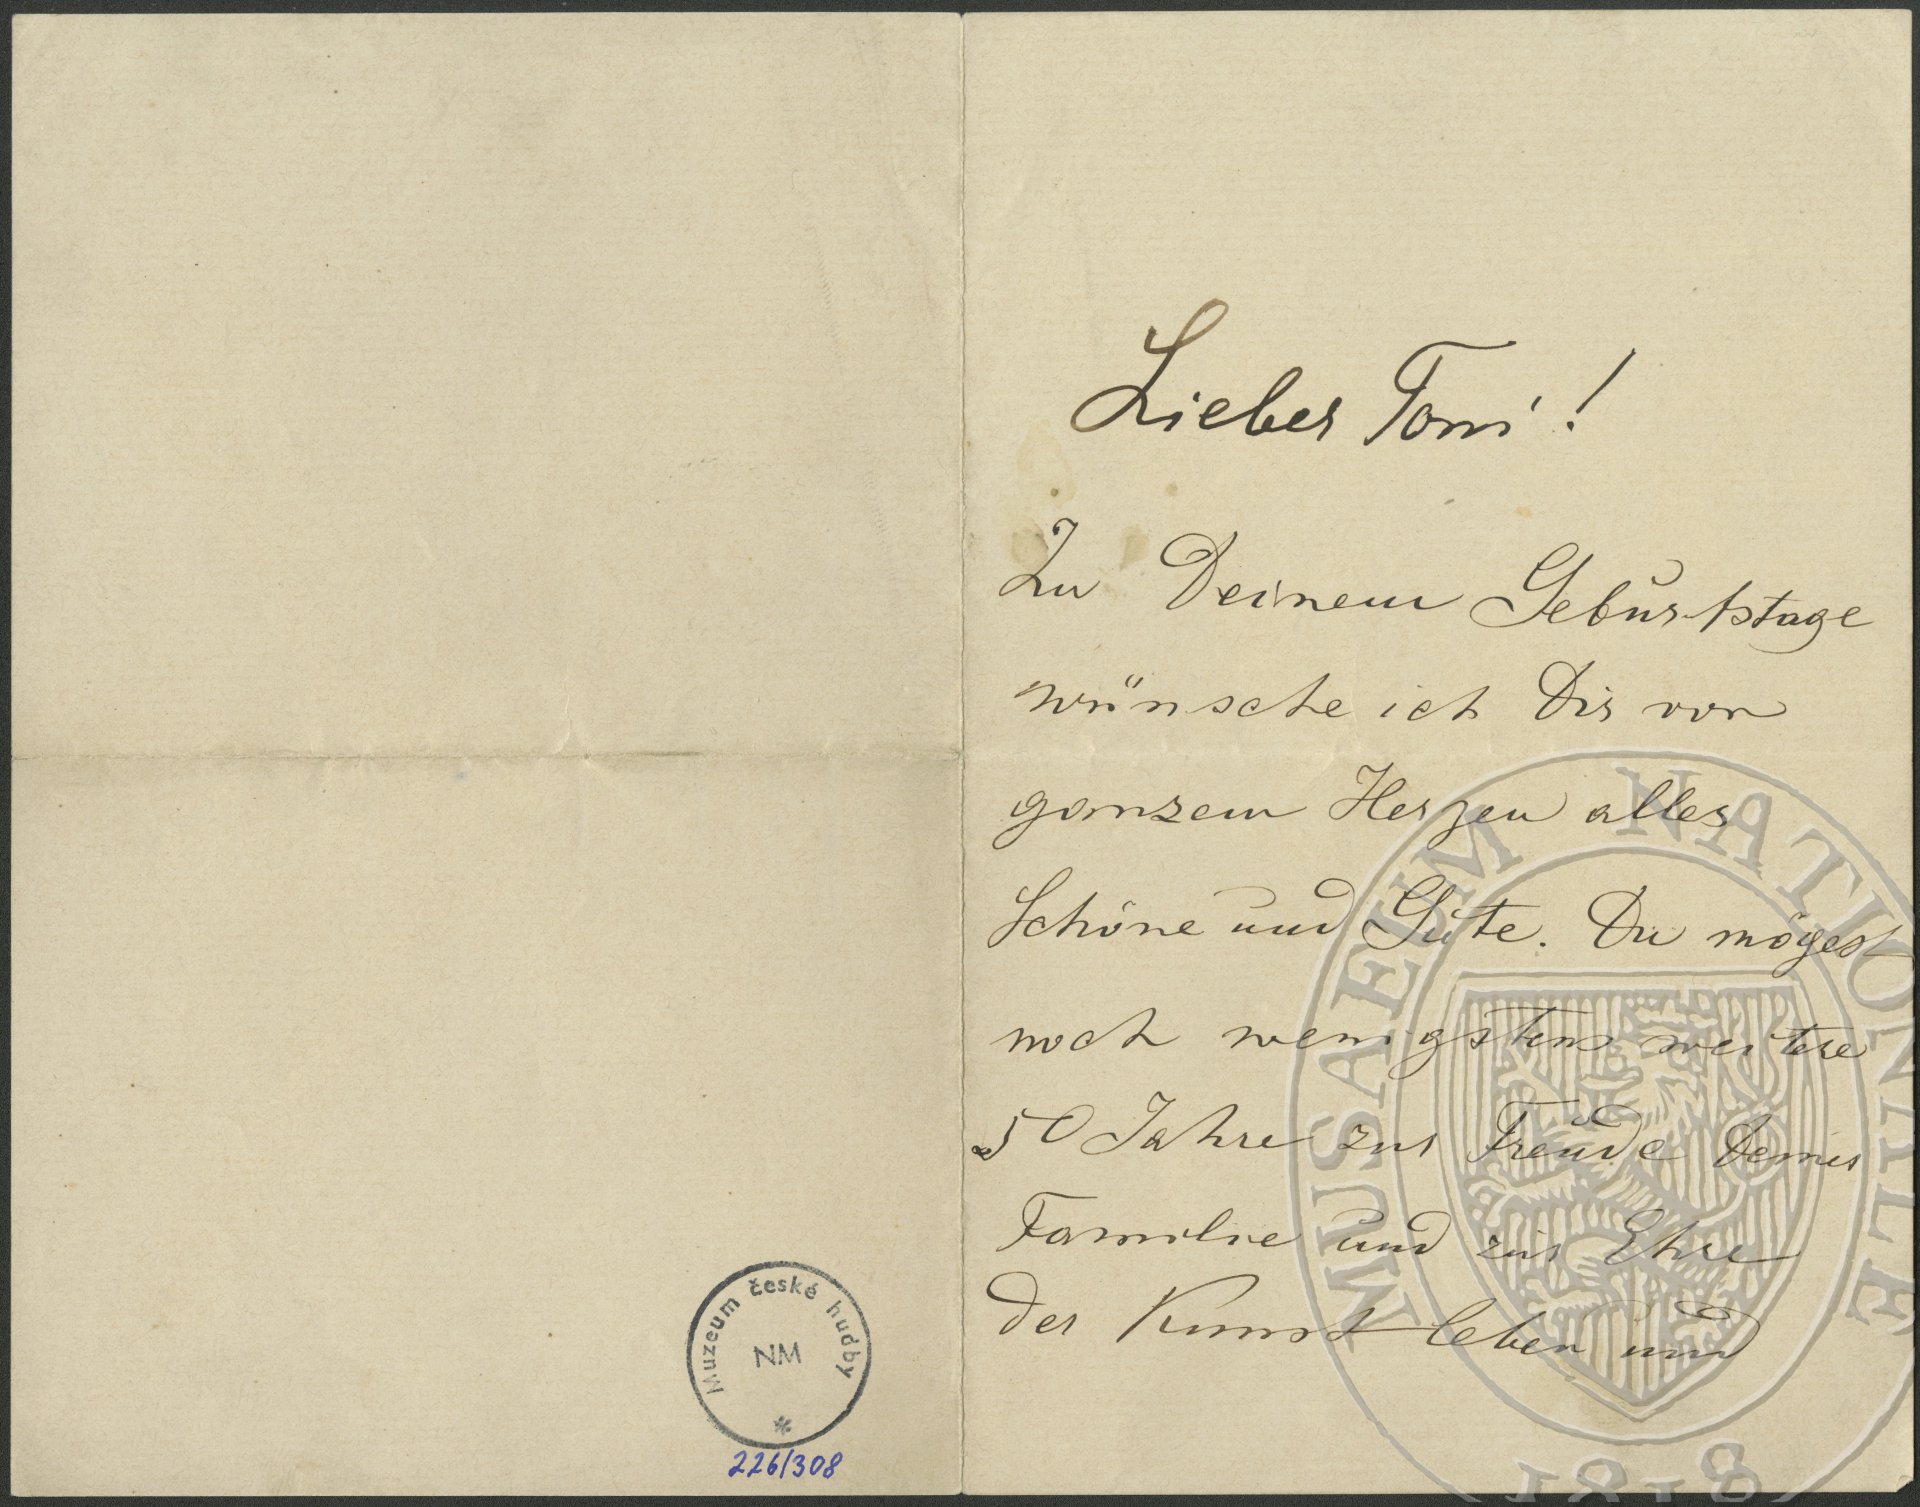 Muzeum české hudby
NM
*
226/308
Lieber Toni!
Zu Deinem Geburtstage
wünsche ich Dir von
ganzem Herzen alles
Schöne und Gute. Du mögest
noch wenigstens weitere
50 Jahre zur Freude Deiner
Familie und zur Ehre
der Kunst leben und
MUSAEUM NATIONALE
1818